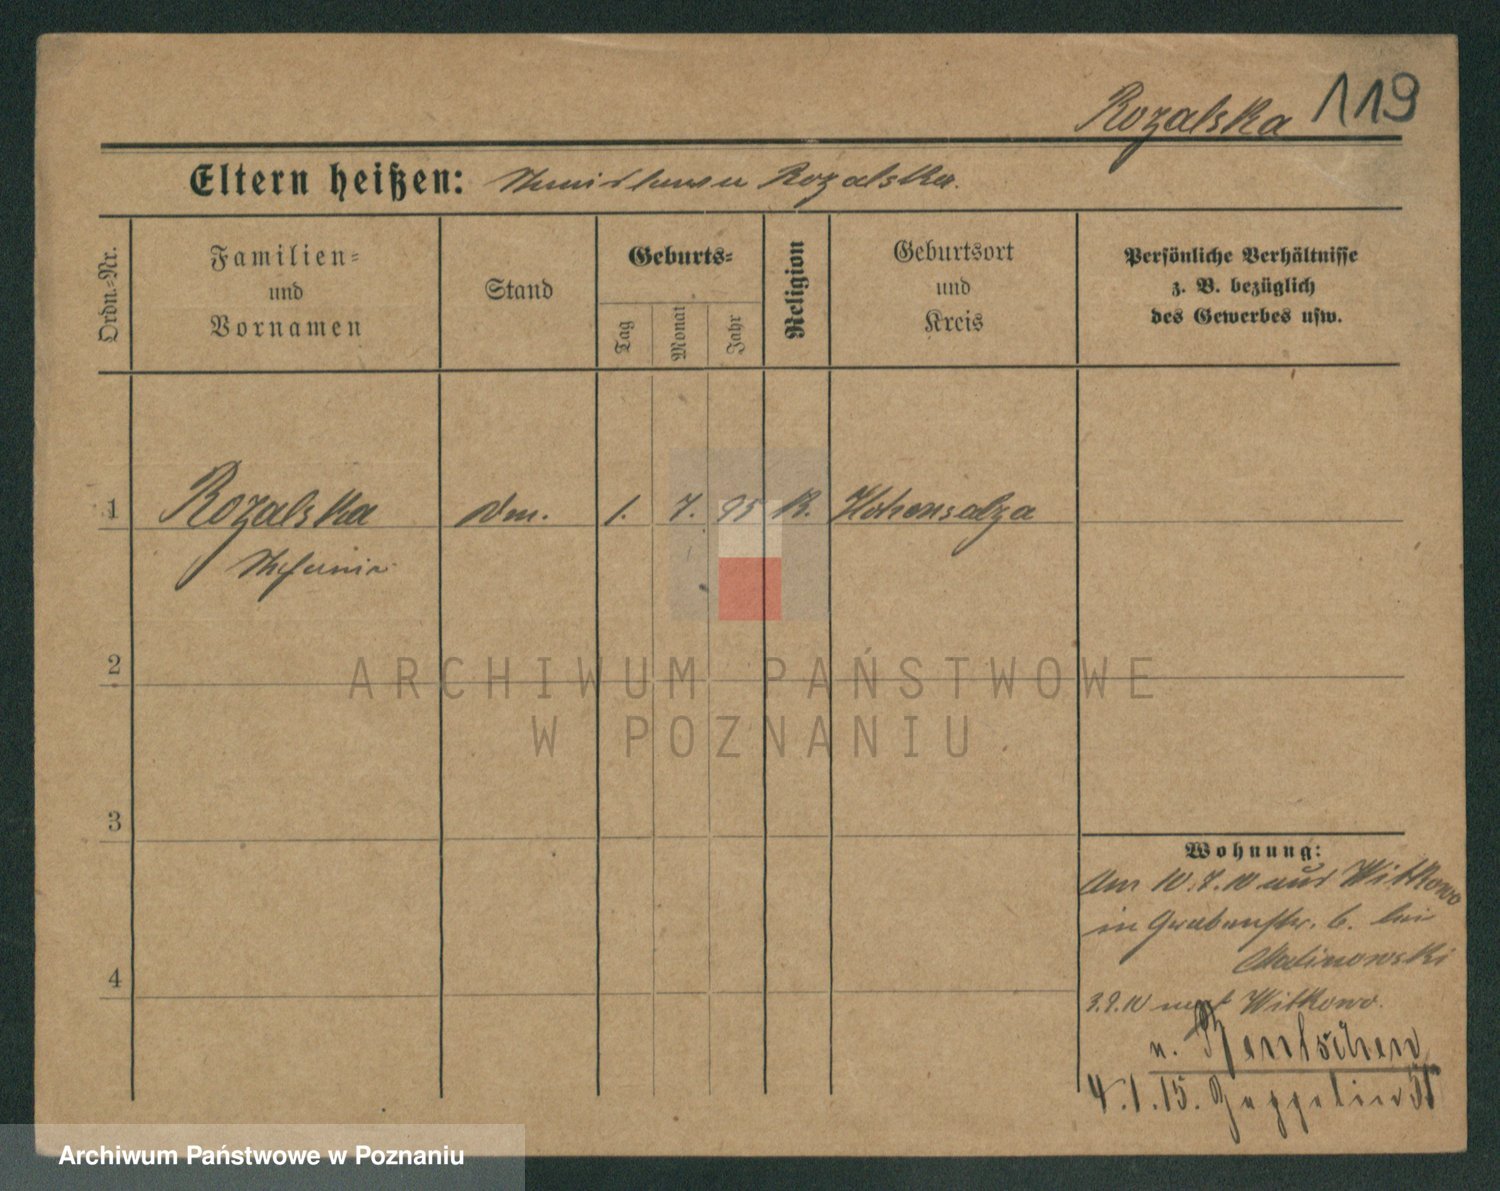 Rozalska 119
Eltern heißen: Rozalska.
Ordn.=Nr.
Familien=
und
Vornamen
Stand
Geburts=
Tag
Monat
Jahr
Religion
Geburtsort
und
Kreis
Persönliche Verhältnisse
z. B. bezüglich
des Gewerbes usw.
1 Rozalska 1. 7. 95 K. Hohensalza
2
3
4
Wohnung:
Am 10.7.10 aus Witkowo
in Grabenstr. 6. bei
Malinowski
3.9.10 nach Witkowo.
n. Bentschen
4.1.15. Zeppelin
ARCHIWUM PAŃSTWOWE
W POZNANIU
Archiwum Państwowe w Poznaniu